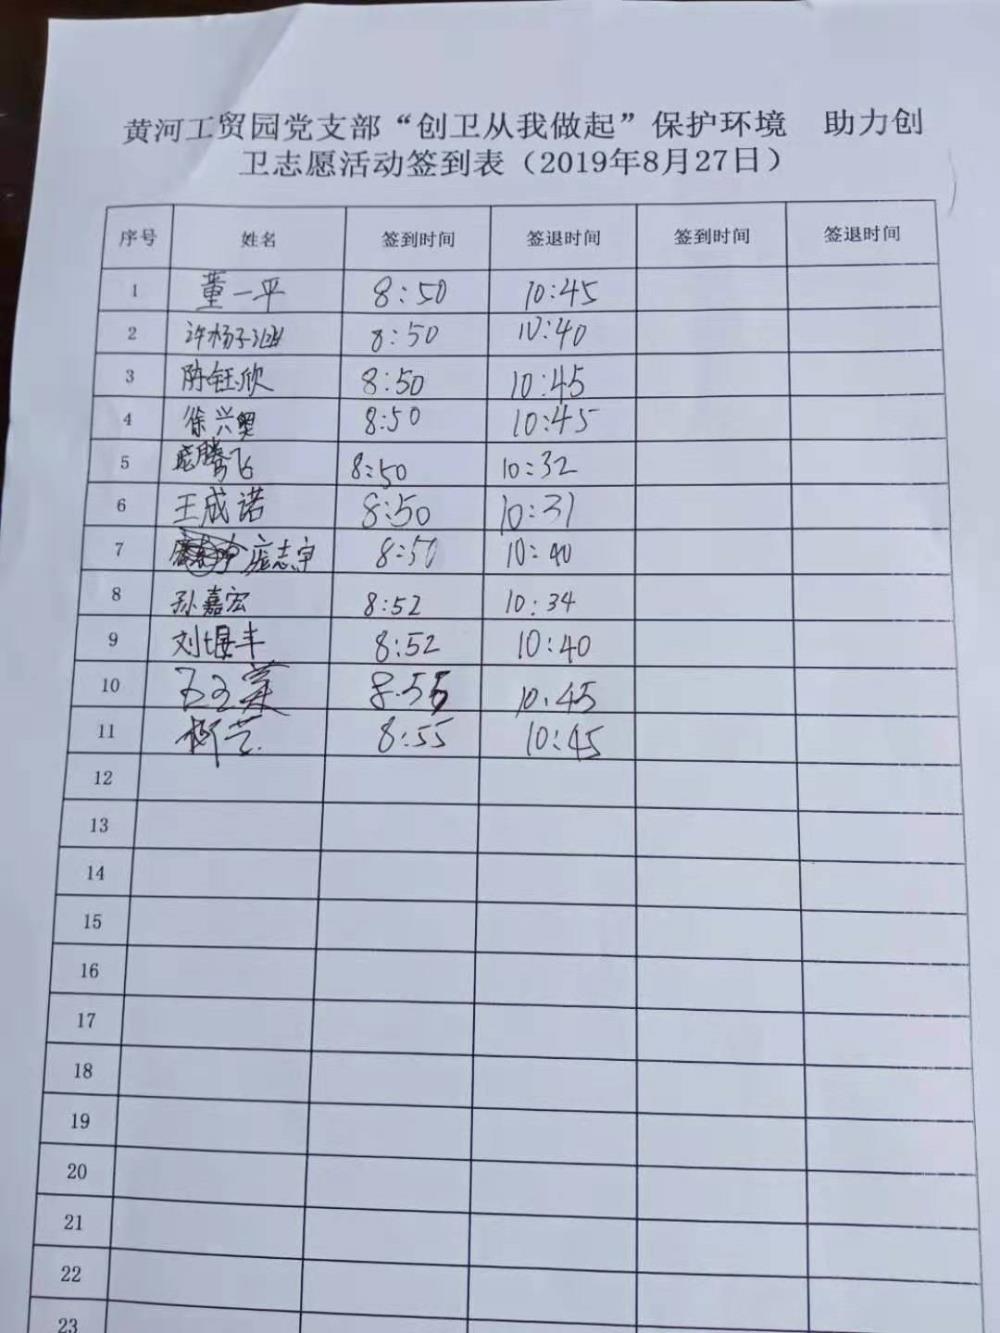 黄河工贸园党支部“创卫从我做起”保护环境 助力创
卫志愿活动签到表（2019年8月27日）
序号 姓名 签到时间 签退时间 签到时间 签退时间
1 董一平 8:50 10:45
2 许杨子涵 8:50 10:40
3 陈钰欣 8:50 10:45
4 徐兴奥 8:50 10:45
5 腾飞 8:50 10:32
6 王成诺 8:50 10:31
7 庞志宇 8:50 10:40
8 孙嘉宏 8:52 10:34
9 刘堰丰 8:52 10:40
10 8:55 10:45
11 8:55 10:45
12
13
14
15
16
17
18
19
20
21
22
23